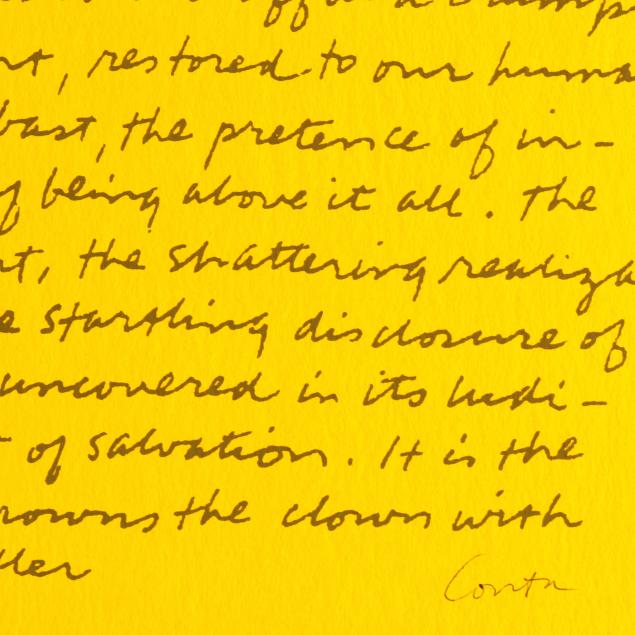 nt, restored to our huma
bast, the pretence of in-
of being above it all. The
nt, the shattering realiza
e startling disclosure of
uncovered in its ludi-
of salvation. It is the
rowns the clown with
ller
Corita